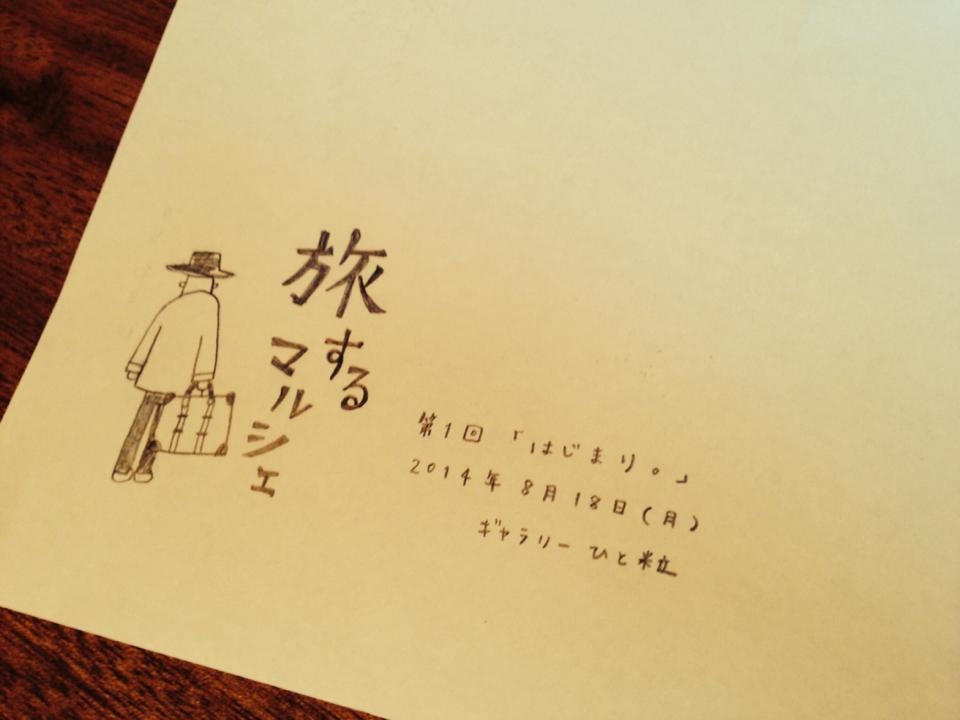 旅する
マルシェ
第1回「はじまり。」
2014年8月18日(月)
ギャラリーひと粒